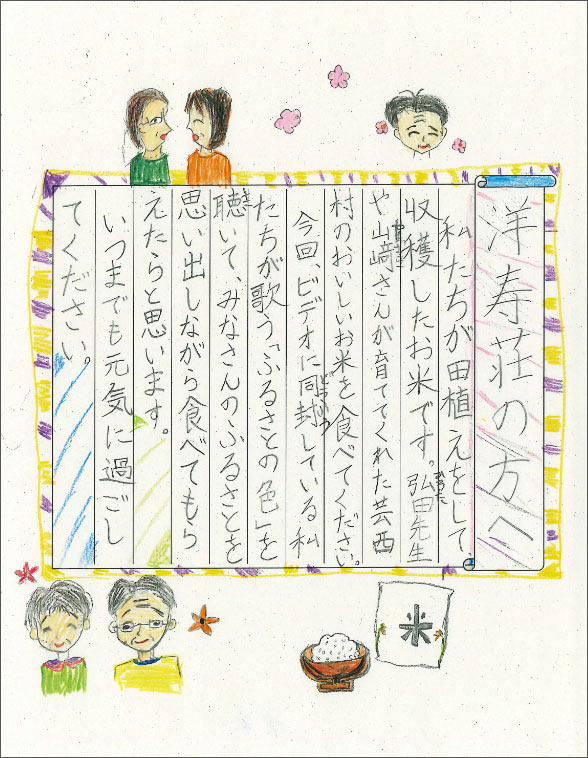 洋寿荘の方へ
私たちが田植えをして、
収穫したお米です。弘田先生
や山﨑さんが育ててくれた芸西
村のおいしいお米を食べてください。
今回、ビデオに同封している私
たちが歌う「ふるさとの色」を
聴いて、みなさんのふるさとを
思い出しながら食べてもら
えたらと思います。
いつまでも元気に過ごし
てください。
米